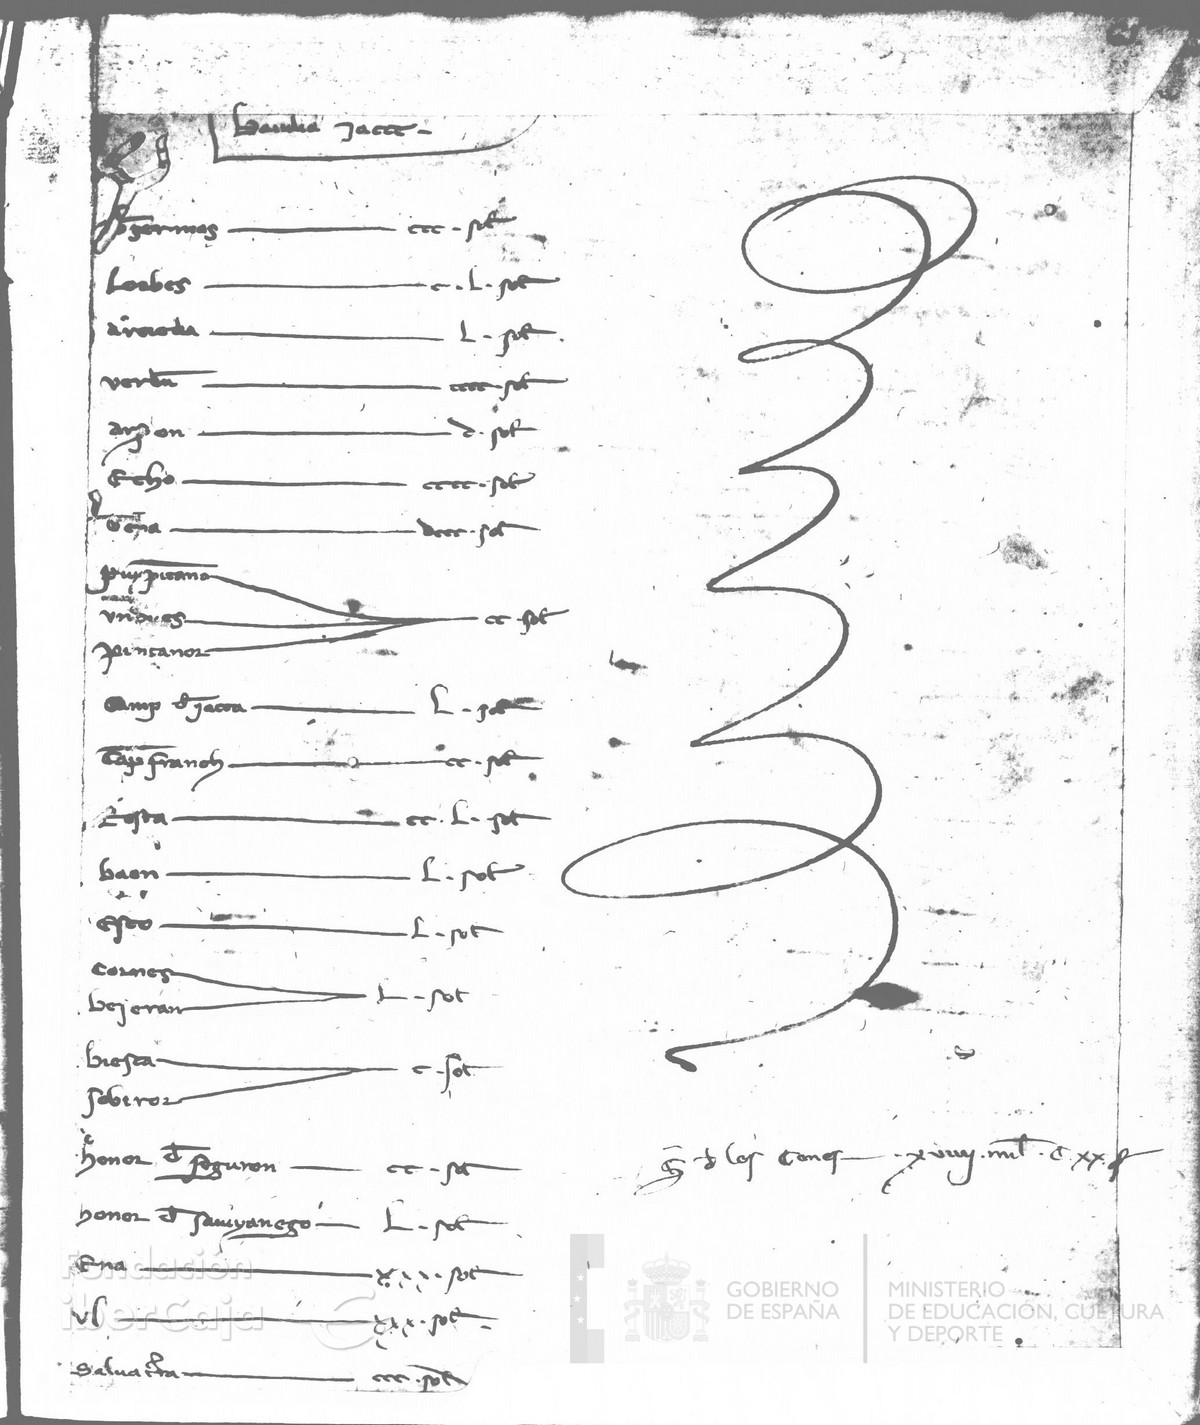 bailia jacce
bergermas ccc sol
lorbes c L sol
artieda L sol
verdun cccc sol
aragon d sol
Echo cccc sol
Sena dccc sol
puyxpintano
undues cc sol
pintanor
Camp de jacca L sol
Campfranch cc sol
Losta cc L sol
baon L sol
Esco L sol
Cornes
bejeran L sol
biesta
sobiror c sol
honor de seguron cc sol
honor de saviyanego L sol
Ena xxx sol
Ul xxx sol
Salvatierra ccc sol
de los Cenes xviiij mil C xx
fundación
iberCaja
GOBIERNO
DE ESPAÑA
MINISTERIO
DE EDUCACIÓN, CULTURA
Y DEPORTE